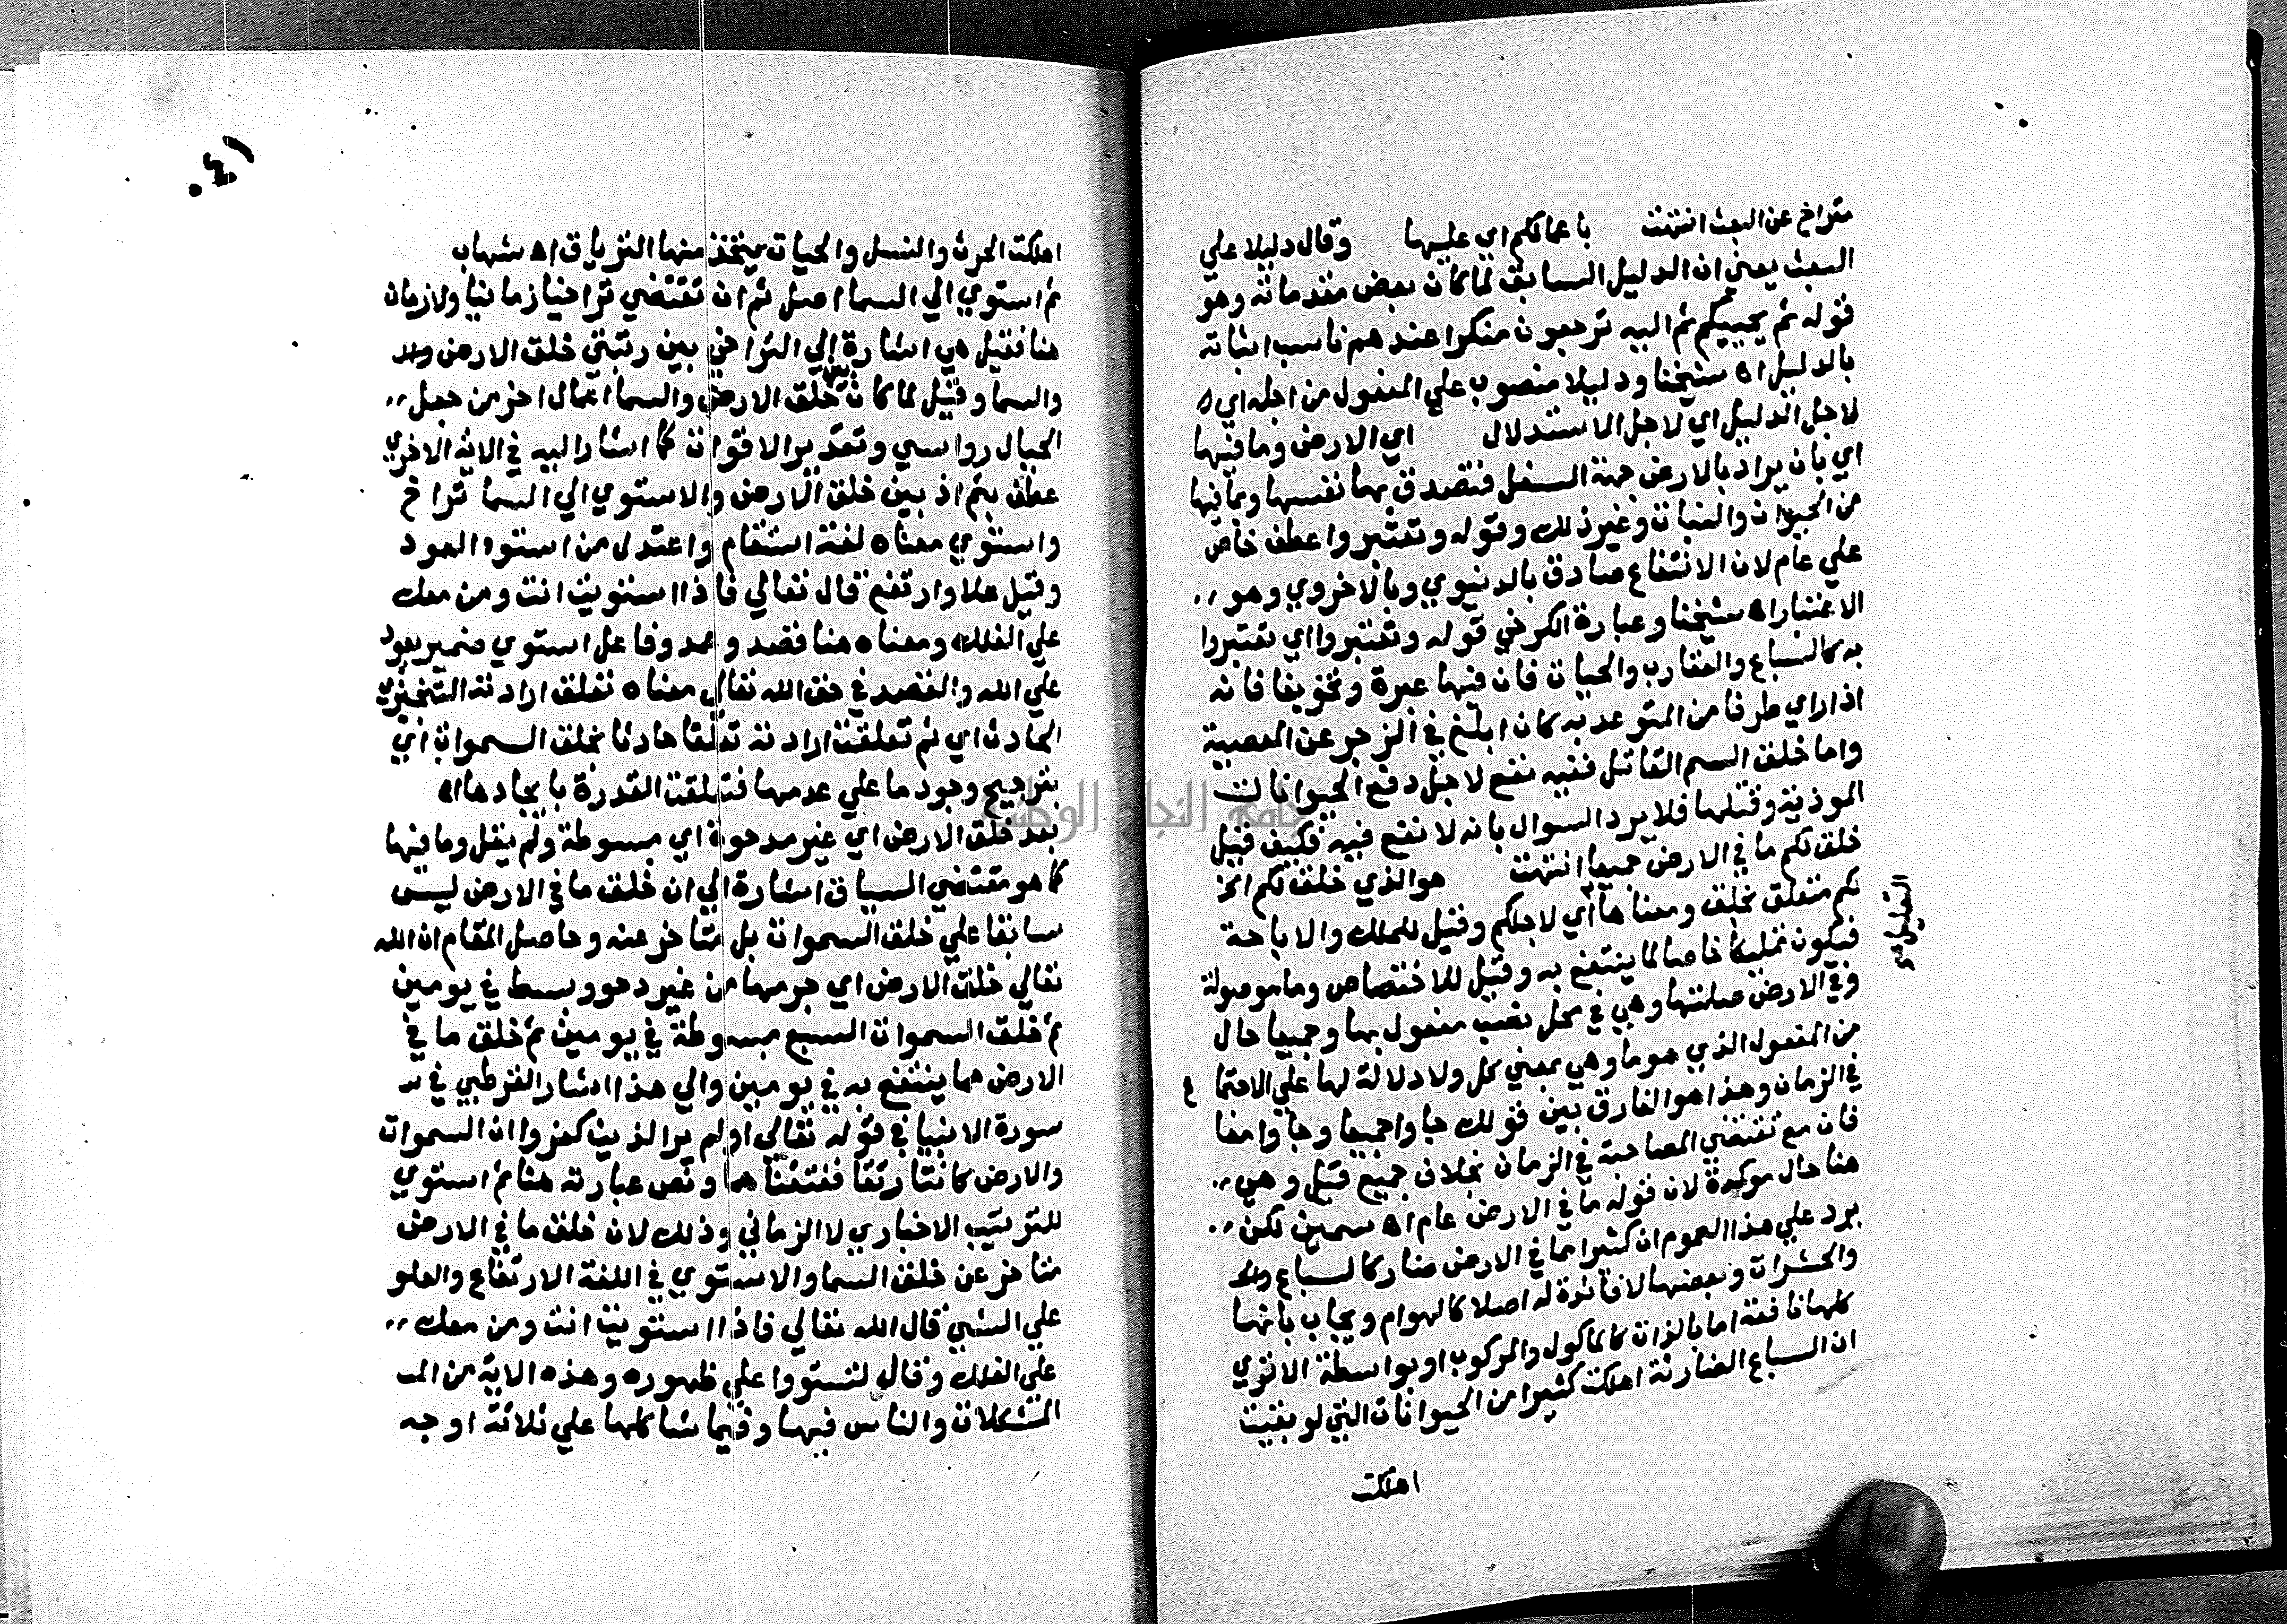 متراخ عن البعث انتهت باعمالكم اي عليها وقال دليلا علي
البعث يعني ان الدليل السابق لما كان بعض مقدماته وهو
قوله ثم يحييكم ثم اليه ترجعون منكرا عندهم ناسب اثباته
بالدليل اه شيخنا ودليلا منصوب علي المفعول من اجله اي
لاجل الدليل اي لاجل الاستدلال اي الارض وما فيها
اي بان يراد بالارض جهة السفل فتصدق بها نفسها وبما فيها
من الحيوان والنبات وغير ذلك وقوله وتعتبروا عطف خاص
علي عام لان الانتفاع صادق بالدنيوي وبالاخروي وهو
الاعتبار اه شيخنا وعبارة الكرخي قوله وتعتبروا اي تعتبروا
به كالسباع والعقارب والحيات فان فيها عبرة وتخويفا فانه
اذا راي طرفا من المتوعد به كان ابلغ في الزجر عن المعصية
واما خلق السم القاتل ففيه نفع لاجل دفع الحيوانات
الموذية وقتلها فلا يرد السوال بانه لا نفع فيه فكيف قيل
خلق لكم ما في الارض جميعا انتهت هو الذي خلق لكم الخ
لكم متعلق بخلق ومعناها اي لاجلكم وقيل للملك والاباحة
التعليل
فيكون تمليكا خاصا لما ينتفع به وقيل للاختصاص وما موصولة
وفي الارض صلتها وهي في محل نصب مفعول بها وجميعا حال
من المفعول الذي هو ما وهي بمعني كل ولا دلالة لها علي الاجتما ع
في الزمان وهذا هو الفارق بين قولك جاوا جميعا وجاوا معا
فان مع تقتضي المصاحبة في الزمان بخلاف جميع قيل وهي
هنا حال موكدة لان قوله ما في الارض عام اه سمين لكن
يرد علي هذا العموم ان كثيرا مما في الارض ضار كالسباع
والحشرات وبعضها لا فائدة له اصلا كالهوام ويجاب بانها
كلها نافعة اما بالذات كالماكول والمركوب او بواسطة الا تري
ان السباع الضارية اهلكت كثيرا من الحيوانات التي لو بقيت
اهلكت
٤١
اهلكت الحرث والنسل والحيات يتخذ منها الترياق اه شهاب
ثم استوي الي السما اصل ثم ان تقتضي تراخيا زمانيا ولا زمان
هنا فقيل هي اشارة الي التراخي بين رتبتي خلق الارض
والسما وقيل لما كان بين خلق الارض والسما اعمال اخر من جعل
الجبال رواسي وتقدير الاقوات كما اشار اليه في الاية الاخري
عطف بثم اذ بين خلق الارض والاستوي الي السما تراخ
واستوي معناه لغة استقام واعتدل من استوا العود
وقيل علا وارتفع قال تعالي فاذا استويت انت ومن معك
علي الفلك ومعناه هنا قصد وعمد وفاعل استوي ضمير يعود
علي الله والقصد في حق الله تعالي معناه تعلق ارادته التنجيزي
الحادث اي ثم تعلقت ارادته تعلقا حادثا بخلق السموات اي
بترجيح وجودها علي عدمها فتعلقت القدرة بايجادها اه
بعد خلق الارض اي غير مدحوة اي مبسوطة ولم يقل وما فيها
كما هو مقتضي السياق اشارة الي ان خلق ما في الارض ليس
سابقا علي خلق السموات بل متاخر عنه وحاصل المقام ان الله
تعالي خلق الارض اي جرمها من غير دحو وبسط في يومين
ثم خلق السموات السبع مبسوطة في يومين ثم خلق ما في
الارض مما ينتفع به في يومين والي هذا اشار القرطبي في
سورة الانبيا في قوله تعالي اولم ير الذين كفروا ان السموات
والارض كانتا رتقا ففتقناهما ونص عبارته هنا ثم استوي
للترتيب الاخباري لا الزماني وذلك لان خلق ما في الارض
متاخر عن خلق السما والاستوي في اللغة الارتفاع والعلو
علي الشي قال الله تعالي فاذا استويت انت ومن معك
علي الفلك وقال لتستووا علي ظهوره وهذه الاية من
المشكلات والناس فيها وفيما شاكلها علي ثلاثة اوجه
جامعة النجاح الوطنية